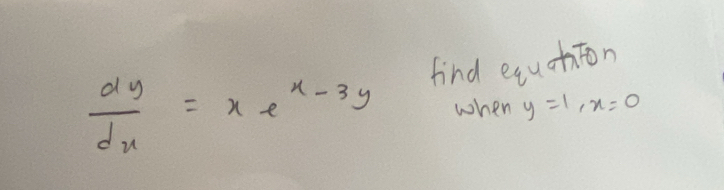 dy/dx = x e^{x-3y}
find equation
when y=1, x=0